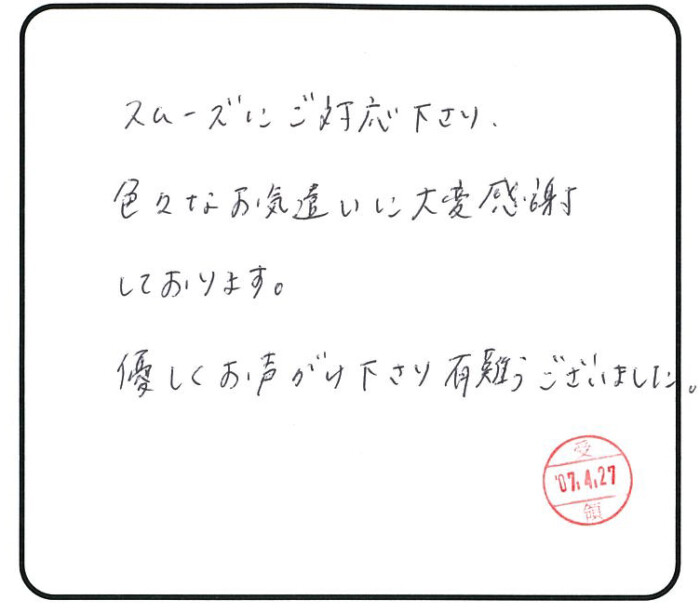 スムーズにご対応下さり、
色々なお気遣いに大変感謝
しております。
優しくお声がけ下さり有難うございました。
受
'07.4.27
領